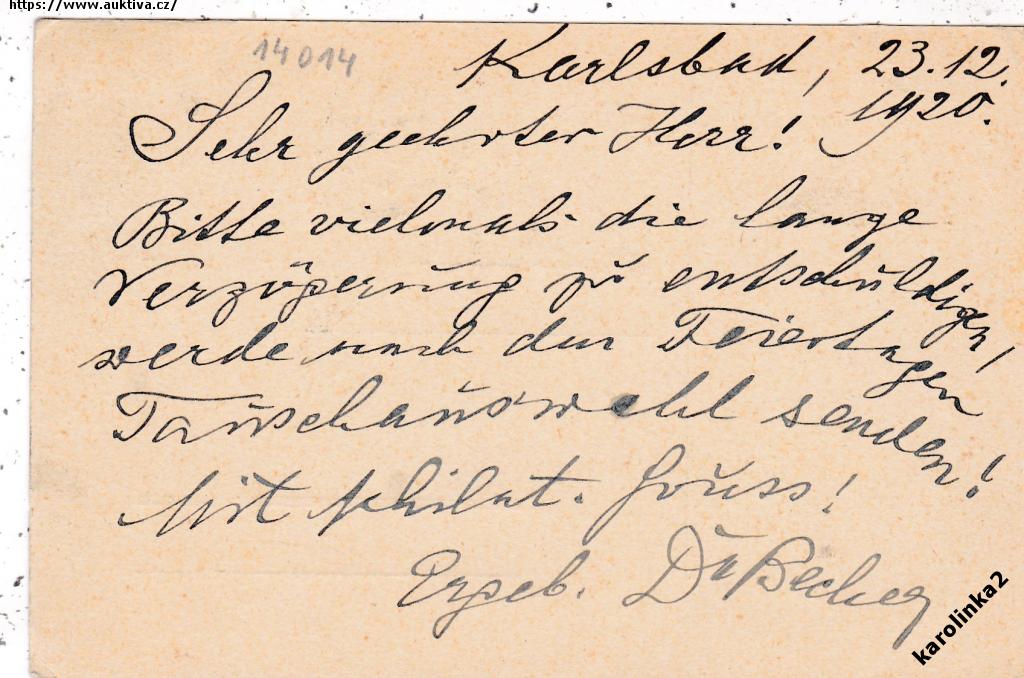 https://www.auktiva.cz/
14014
Karlsbad, 23.12.
1920.
Sehr geehrter Herr!
Bitte vielmals die lange
Verzögerung zu entschuldigen,
werde nach den Feiertagen
Tauschauswahl senden!
Mit philat. Gruss!
Ergeb. Dr Becher
karolinka2